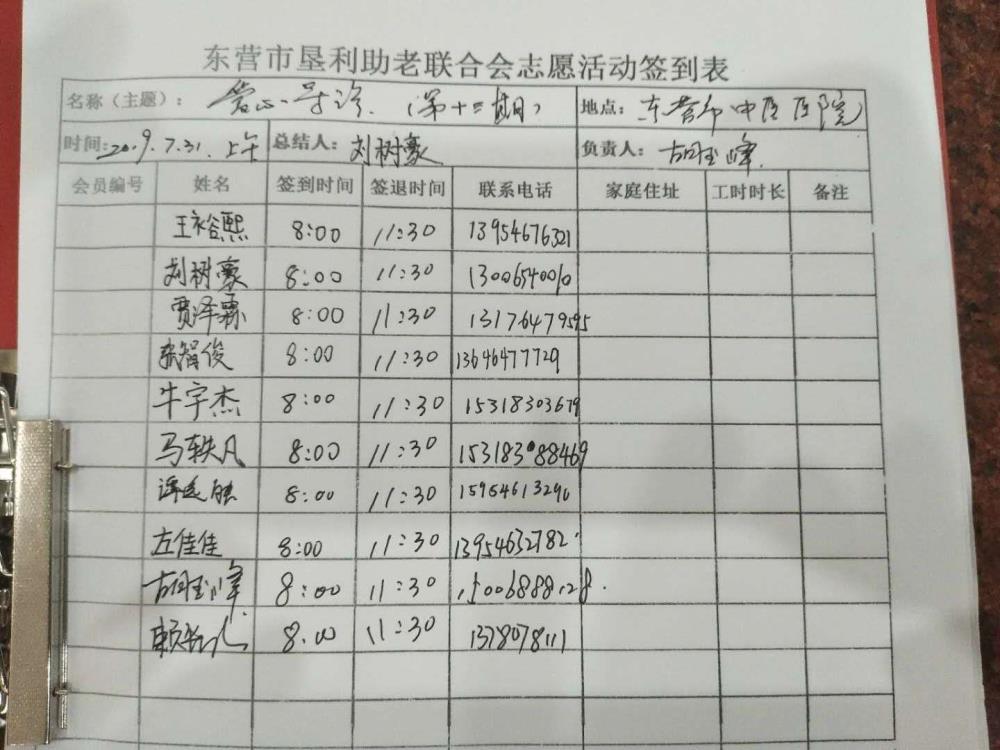 东营市垦利助老联合会志愿活动签到表
名称（主题）： 导诊.（第十三期） 地点：东营市中医医院
时间：2019.7.31.上午 总结人：刘树豪 负责人：胡玉峰
会员编号 姓名 签到时间 签退时间 联系电话 家庭住址 工时时长 备注
王裕熙 8:00 11:30 13954676321
刘树豪 8:00 11:30 13006540010
贾泽霖 8:00 11:30 13176479595
张智俊 8:00 11:30 13646477729
牛宇杰 8:00 11:30 15318303679
马轶凡 8:00 11:30 15318388469
8:00 11:30 15954613290
左佳佳 8:00 11:30 13954632782
胡玉峰 8:00 11:30 15006888128.
8:00 11:30